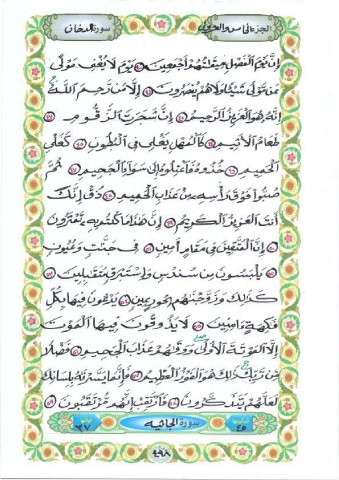 الجزء الخامس والعشرون
سورة الدخان
إِنَّ يَوْمَ الْفَصْلِ مِيقَاتُهُمْ أَجْمَعِينَ ٤٠ يَوْمَ لَا يُغْنِي مَوْلًى
عَن مَّوْلًى شَيْئًا وَلَا هُمْ يُنصَرُونَ ٤١ إِلَّا مَن رَّحِمَ اللَّهُ
إِنَّهُ هُوَ الْعَزِيزُ الرَّحِيمُ ٤٢ إِنَّ شَجَرَتَ الزَّقُّومِ ٤٣
طَعَامُ الْأَثِيمِ ٤٤ كَالْمُهْلِ يَغْلِي فِي الْبُطُونِ ٤٥ كَغَلْيِ
الْحَمِيمِ ٤٦ خُذُوهُ فَاعْتِلُوهُ إِلَى سَوَاءِ الْجَحِيمِ ٤٧ ثُمَّ
صُبُّوا فَوْقَ رَأْسِهِ مِنْ عَذَابِ الْحَمِيمِ ٤٨ ذُقْ إِنَّكَ
أَنتَ الْعَزِيزُ الْكَرِيمُ ٤٩ إِنَّ هَذَا مَا كُنتُم بِهِ تَمْتَرُونَ
٥٠ إِنَّ الْمُتَّقِينَ فِي مَقَامٍ أَمِينٍ ٥١ فِي جَنَّاتٍ وَعُيُونٍ
٥٢ يَلْبَسُونَ مِن سُندُسٍ وَإِسْتَبْرَقٍ مُّتَقَابِلِينَ ٥٣
كَذَلِكَ وَزَوَّجْنَاهُم بِحُورٍ عِينٍ ٥٤ يَدْعُونَ فِيهَا بِكُلِّ
فَاكِهَةٍ آمِنِينَ ٥٥ لَا يَذُوقُونَ فِيهَا الْمَوْتَ
إِلَّا الْمَوْتَةَ الْأُولَى وَوَقَاهُمْ عَذَابَ الْجَحِيمِ ٥٦ فَضْلًا
مِّن رَّبِّكَ ذَلِكَ هُوَ الْفَوْزُ الْعَظِيمُ ٥٧ فَإِنَّمَا يَسَّرْنَاهُ بِلِسَانِكَ
لَعَلَّهُمْ يَتَذَكَّرُونَ ٥٨ فَارْتَقِبْ إِنَّهُم مُّرْتَقِبُونَ ٥٩
ترتيبها ٤٥
سورة الجاثية
آياتها ٣٧
٤٩٨